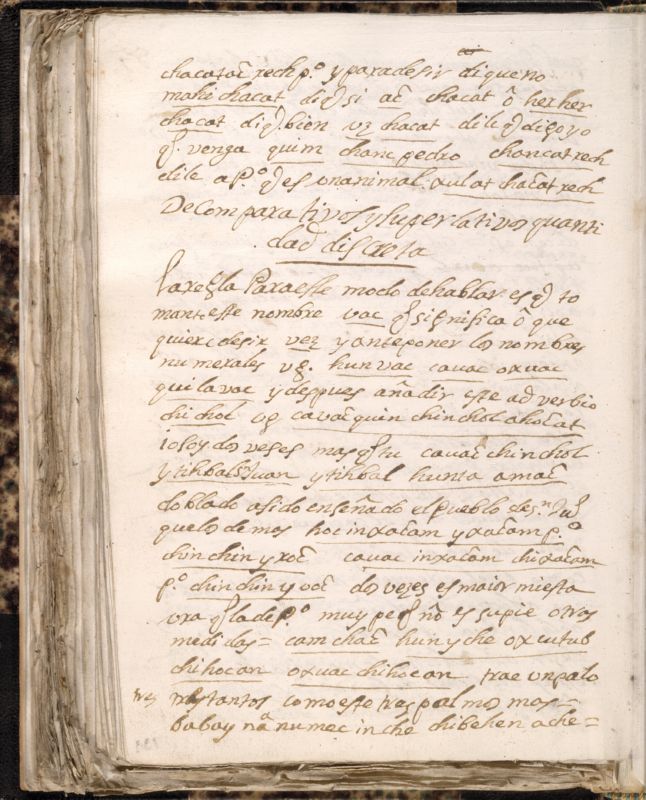 chacatac̃ rech p.º y para desir di que no
mahi chacat di q̃ si ac̃ chacat ô her her
chacat di q̃ bien vz chacat dile q̃ digo yo
q̃ venga quim chanc pedro chancat rech
dile a p.º q̃ es vn animal. xul at chac̃at rech
De Comparativos y superlativos quanti
dad discreta
La regla Para este modo de hablar es q̃ to
mante este nombre vac q̃ significa ô que
quiere desir vez y anteponer los nombres
numerales vg. hunvac cavac oxvac
quilavac y despues añadir este adverbio
chichol vg cavac̃ quin chinchol chocat
io soy dos veses mas q̃ tu cavac̃ chinchol
y tihbal s.n Juan y tihbal hunta amac̃
doblado a sido enseñado el pueblo de s.n Ju.
que los demas hoc inxac̃am y xac̃am p.º
chinchin y voc̃ cavac inxac̃am chixac̃am
p.º chinchin y voc̃ dos vezes es maior mi esta
vra q̃ la de p.º muy peq̃ño es su pie otros
medidas = cam chac̃ hun y che oxcutub
chihocan oxvac chihocan trae un palo
tres tantos como este tres palmos mas =
babay nâ numec in che chibehen ache =